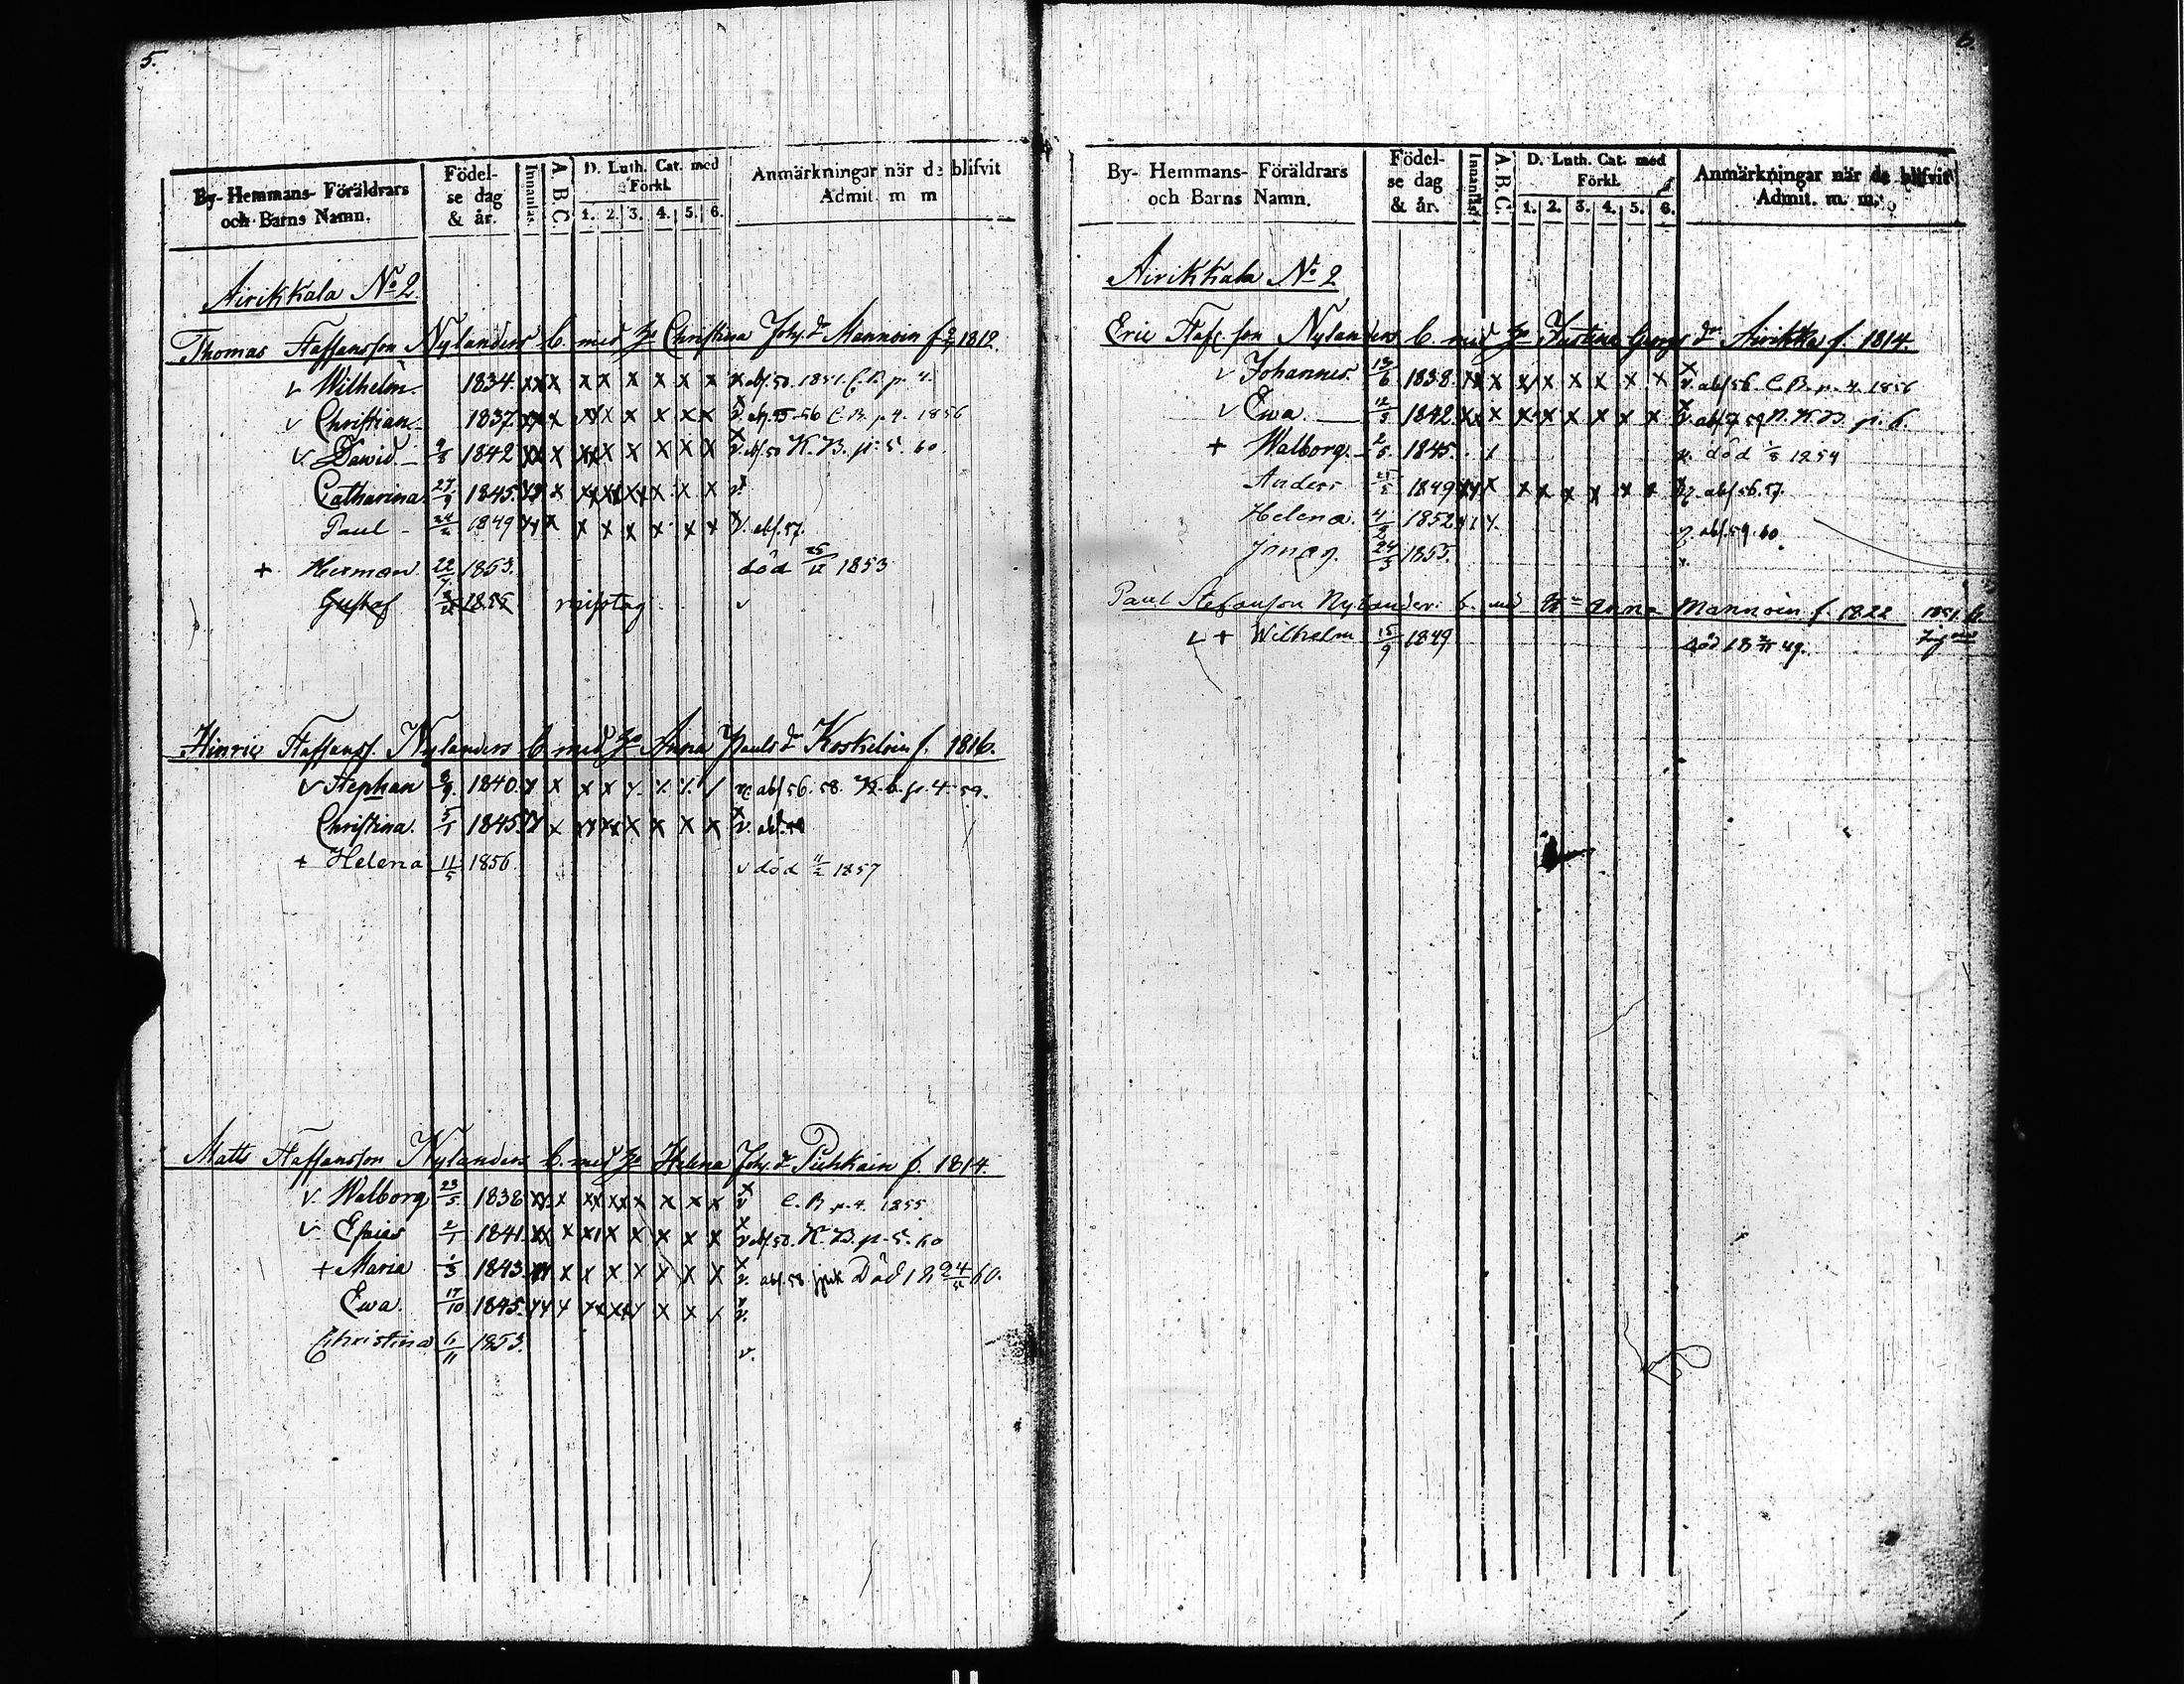 5.
By- Hemmans- Föräldrars och Barns Namn. Födelse dag & år. Innanläs. A B C. D. Luth. Cat. med Förkl. 1. 2. 3. 4. 5. 6. Anmärkningar när de blifvit Admit. m m
Airikkala No 2.
Thomas Staffansson Nylanders b. med Christina Joh. dr Mannoin f. 1812.
v Wilhelm 1834. x x x x x x x x x abs. 50. 1851. C. B. p. 4.
v Christian 1837. x x x x x x x x x v. 56 C. B. p. 4. 1856
v. Dawid 9/8 1842 x x x x x x x x x v. abs. 50 K. B. p. 5. 60.
Catharina 27/9 1845. x x x x x x x x v.
Paul 24/2 1849 x x x x x x x x x v. abs. 57.
+ Herman 22/7 1853. död 25/12 1853
Gustaf 1855 misstag v
Hinric Staffanss. Nylanders b. med Anna Pauls dr Koskeloin f. 1816.
v Stephan 8/9. 1840. x x x x x x x / abs 56. 58. K. b. p. 4. 59.
Christina. 5/1 1845. x x x x x x x x x v. abs.
+ Helena 11/5 1856 v död 11/2 1857
Matts Staffansson Nylanders b. med Helena Joh. dr Puhkain f. 1814.
v. Walborg 23/5. 1838 x x x x x x x x x v C. B. p. 4. 1855
v Esaias 2/1 1841. x x x x x x x x x v abs. 50. K. B. p. 5. 60
+ Maria 1/3 1843. x x x x x x x x x v. abs. 58. sjuk Död 18 24/11 60.
Ewa. 17/10 1845. x x x x x x x x v.
Christina 6/11 1853. v.
6.
By- Hemmans- Föräldrars och Barns Namn. Födelse dag & år. Innanläs. A. B. C. D. Luth. Cat. med Förkl. 1. 2. 3. 4. 5. 6. Anmärkningar när de blifvit Admit. m. m.
Airikkala No 2
Eric Nylanders b. med Justina Georgs dr Airikka f. 1814.
v Johannes. 13/6 1838. x x x x x x x x x v. abs 56. C. B. p. 4. 1856
v Ewa 12/3 1842. x x x x x x x x x v. abs. K. B. p. 6.
+ Walborg. 2/5. 1845. . 1 död 1/8 1854
Anders 1849 x x x x x x x x x abs. 56. 57.
Helena. 4/2 1852 abs. 59. 60
Jonas. 24/3 1855. v.
Paul Stefanson Nylander: b. med Anna Mannoin f. 1822 1851. b.
v + Wilhelm 15/9 1849 död 18 49.